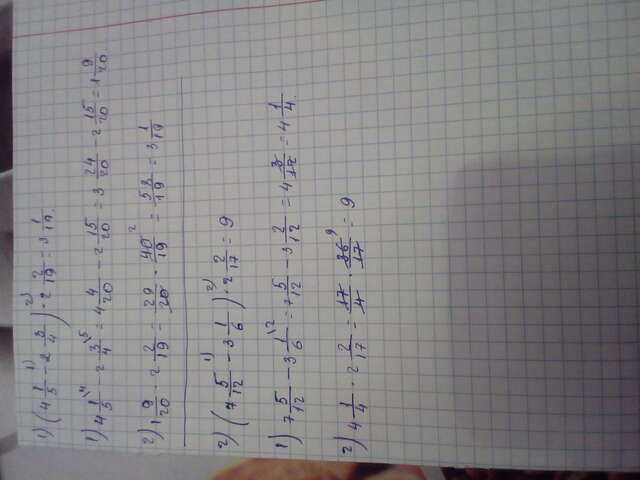 1) (4 1/5 1) − 2 3/4) 2) · 2 2/19 = 3 1/19.
1) 4 1/5 \4 − 2 3/4 \5 = 4 4/20 − 2 15/20 = 3 24/20 − 2 15/20 = 1 9/20
2) 1 9/20 · 2 2/19 = 29/20 · 40/19 2 = 58/19 = 3 1/19
2) (7 5/12 1) − 3 1/6) 2) · 2 2/17 = 9
1) 7 5/12 − 3 1/6 \2 = 7 5/12 − 3 2/12 = 4 3/12 = 4 1/4.
2) 4 1/4 · 2 2/17 = 17/4 · 36/17 9 = 9